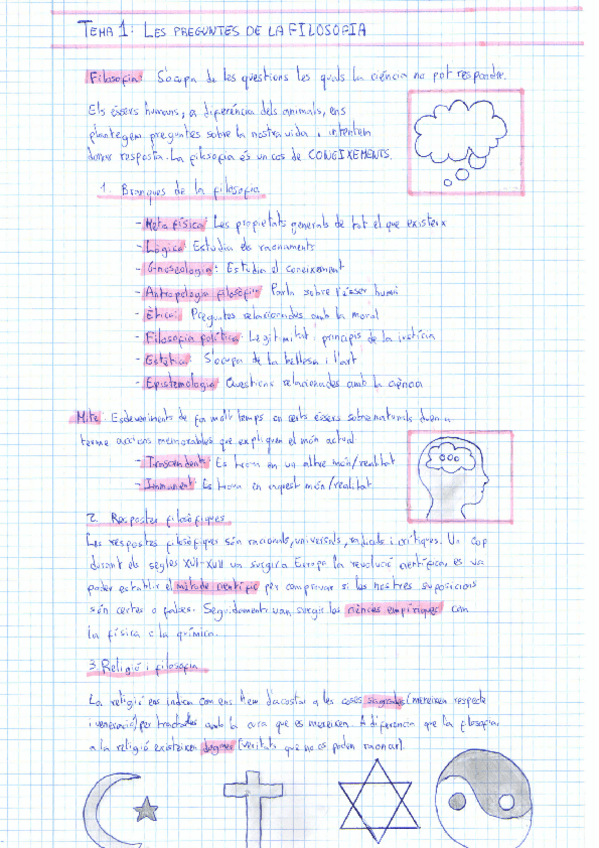 TEMA 1: LES PREGUNTES DE LA FILOSOFIA
Filosofia: S'ocupa de les qüestions les quals la ciència no pot respondre.
Els éssers humans, a diferència dels animals, ens
plantegem preguntes sobre la nostra vida i intentem
donar resposta. La filosofia és un cos de CONEIXEMENTS.
1. Branques de la filosofia
- Metafísica: Les propietats generals de tot el que existeix
- Lògica: Estudia els raonaments
- Gnoseologia: Estudia el coneixement
- Antropologia filosòfica: Parla sobre l'ésser humà
- Ètica: Preguntes relacionades amb la moral
- Filosofia política: Legitimitat i principis de la justícia
- Estètica: S'ocupa de la bellesa i l'art
- Epistemologia: Qüestions relacionades amb la ciència
Mite: Esdeveniments de fa molt temps on certs éssers sobrenaturals duen a
terme accions memorables que expliquen el món actual
- Transcendent: Es troba en un altre món/realitat
- Immanent: Es troba en aquest món/realitat
2. Respostes filosòfiques
Les respostes filosòfiques són racionals, universals, radicals i crítiques. Un cop
durant els segles XVI-XVII va surgir a Europa la revolució científica, es va
poder establir el mètode científic per comprovar si les nostres suposicions
són certes o falses. Seguidament van surgir les ciències empíriques com
la física o la química.
3. Religió i filosofia
La religió ens indica com ens hem d'acostar a les coses sagrades (mereixen respecte
i veneració) per tractar-les amb la cura que es mereixen. A diferència que la filosofia,
a la religió existeixen dogmes (veritats que no es poden raonar).